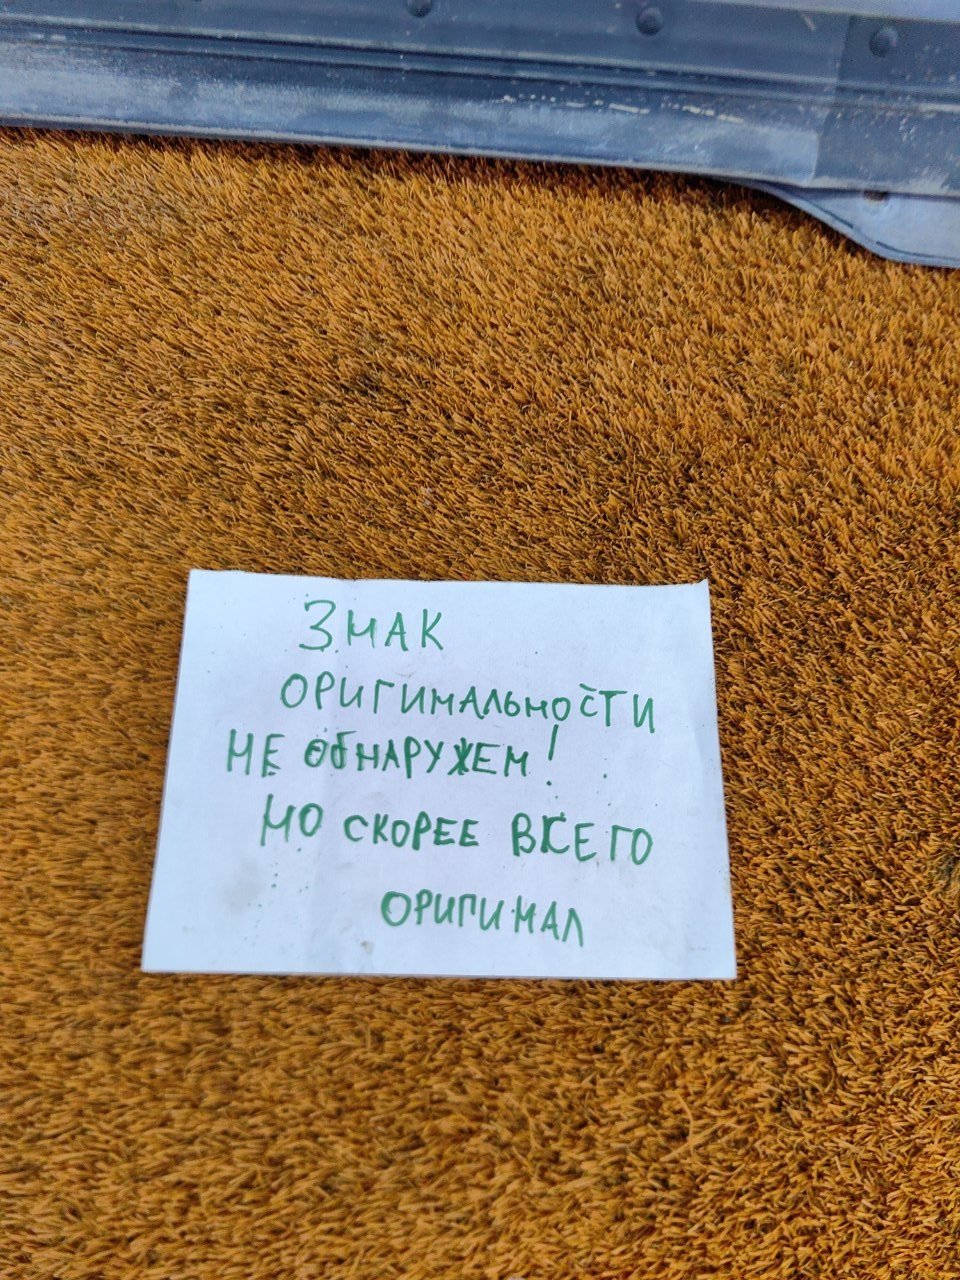 ЗНАК
ОРИГИНАЛЬНОСТИ
НЕ ОБНАРУЖЕН!
НО СКОРЕЕ ВСЕГО
ОРИГИНАЛ